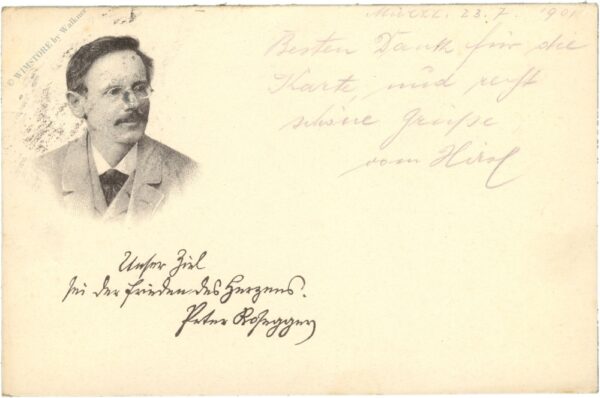 © WIMSTORE by Walkner
23.7. 1901
Besten Dank für die
Karte, und recht
schöne Grüße
vom Hirsl
Unser Ziel
sei der Frieden des Herzens.
Peter Rosegger